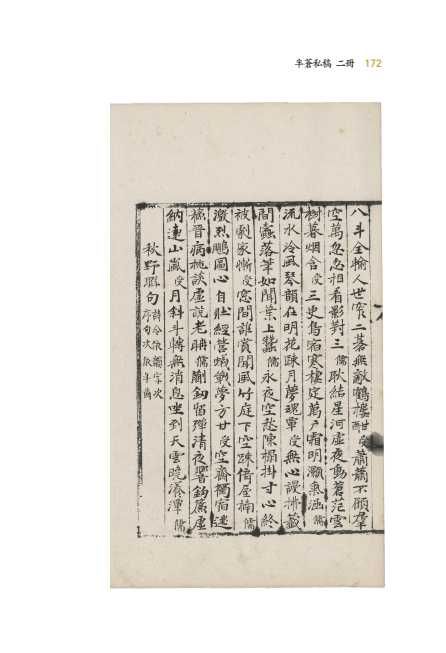 半蒼私稿 二冊 172
八斗全輸人世窄二落無敵鶴樓甜受蕭蕭不願羣
空萬忽忽相看影對三儒耿結星河虛夜動蒼茫雲
樹暮烟含受三叟鳥宿寒棲定萬戶霜明灝氣涵儒
流水冷風琴韻在明花疎月夢魂牽受無心謾揷籤
間蠹落筆如聞葉上蠶儒永夜空愁陳榻掛寸心終
被劇家慚受窓間誰賞聞風竹庭下空疎倚屋楠儒
激烈鵬圖心自壯經營蟻戰夢方甘受空齋獨宿迷
秦晉病枕談虛說老聃儒斸釖留殫清夜響鉤簾虛
納遠山嵐受月斜斗轉無消息坐到天雲曉漆潭儒
秋野聯句 詩令依韻字次 序句次依斗酒